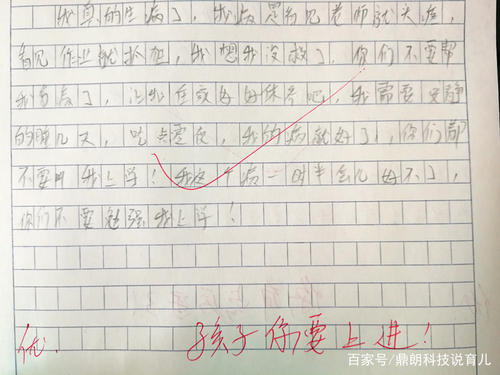 我真的生病了，我病是看见老师就头痛，
看见作业就抓狂，我想我没救了，你们不要帮
我看病了，让我在家好好休息吧，我需要安静
的睡几天，吃点零食，我的病就好了，你们都
不要叫我上学！我这个病一时半会儿好不了，
你们不要勉强我上学！
优.
孩子你要上进！
百家号/鼎朗科技说育儿